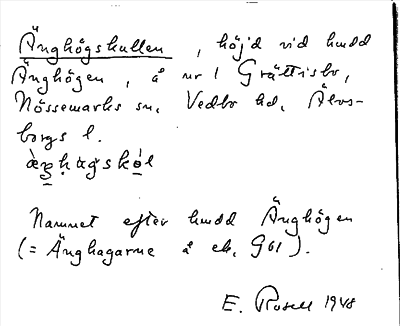 Änghögskullen, höjd vid hmdd
Änghögen, å nr 1 Grättisbo,
Nössemarks sn, Vedbo hd, Älvs-
borgs l.
Namnet efter hmdd Änghögen
(= Änghagarne å ek. G61).
E. Rosell 1948